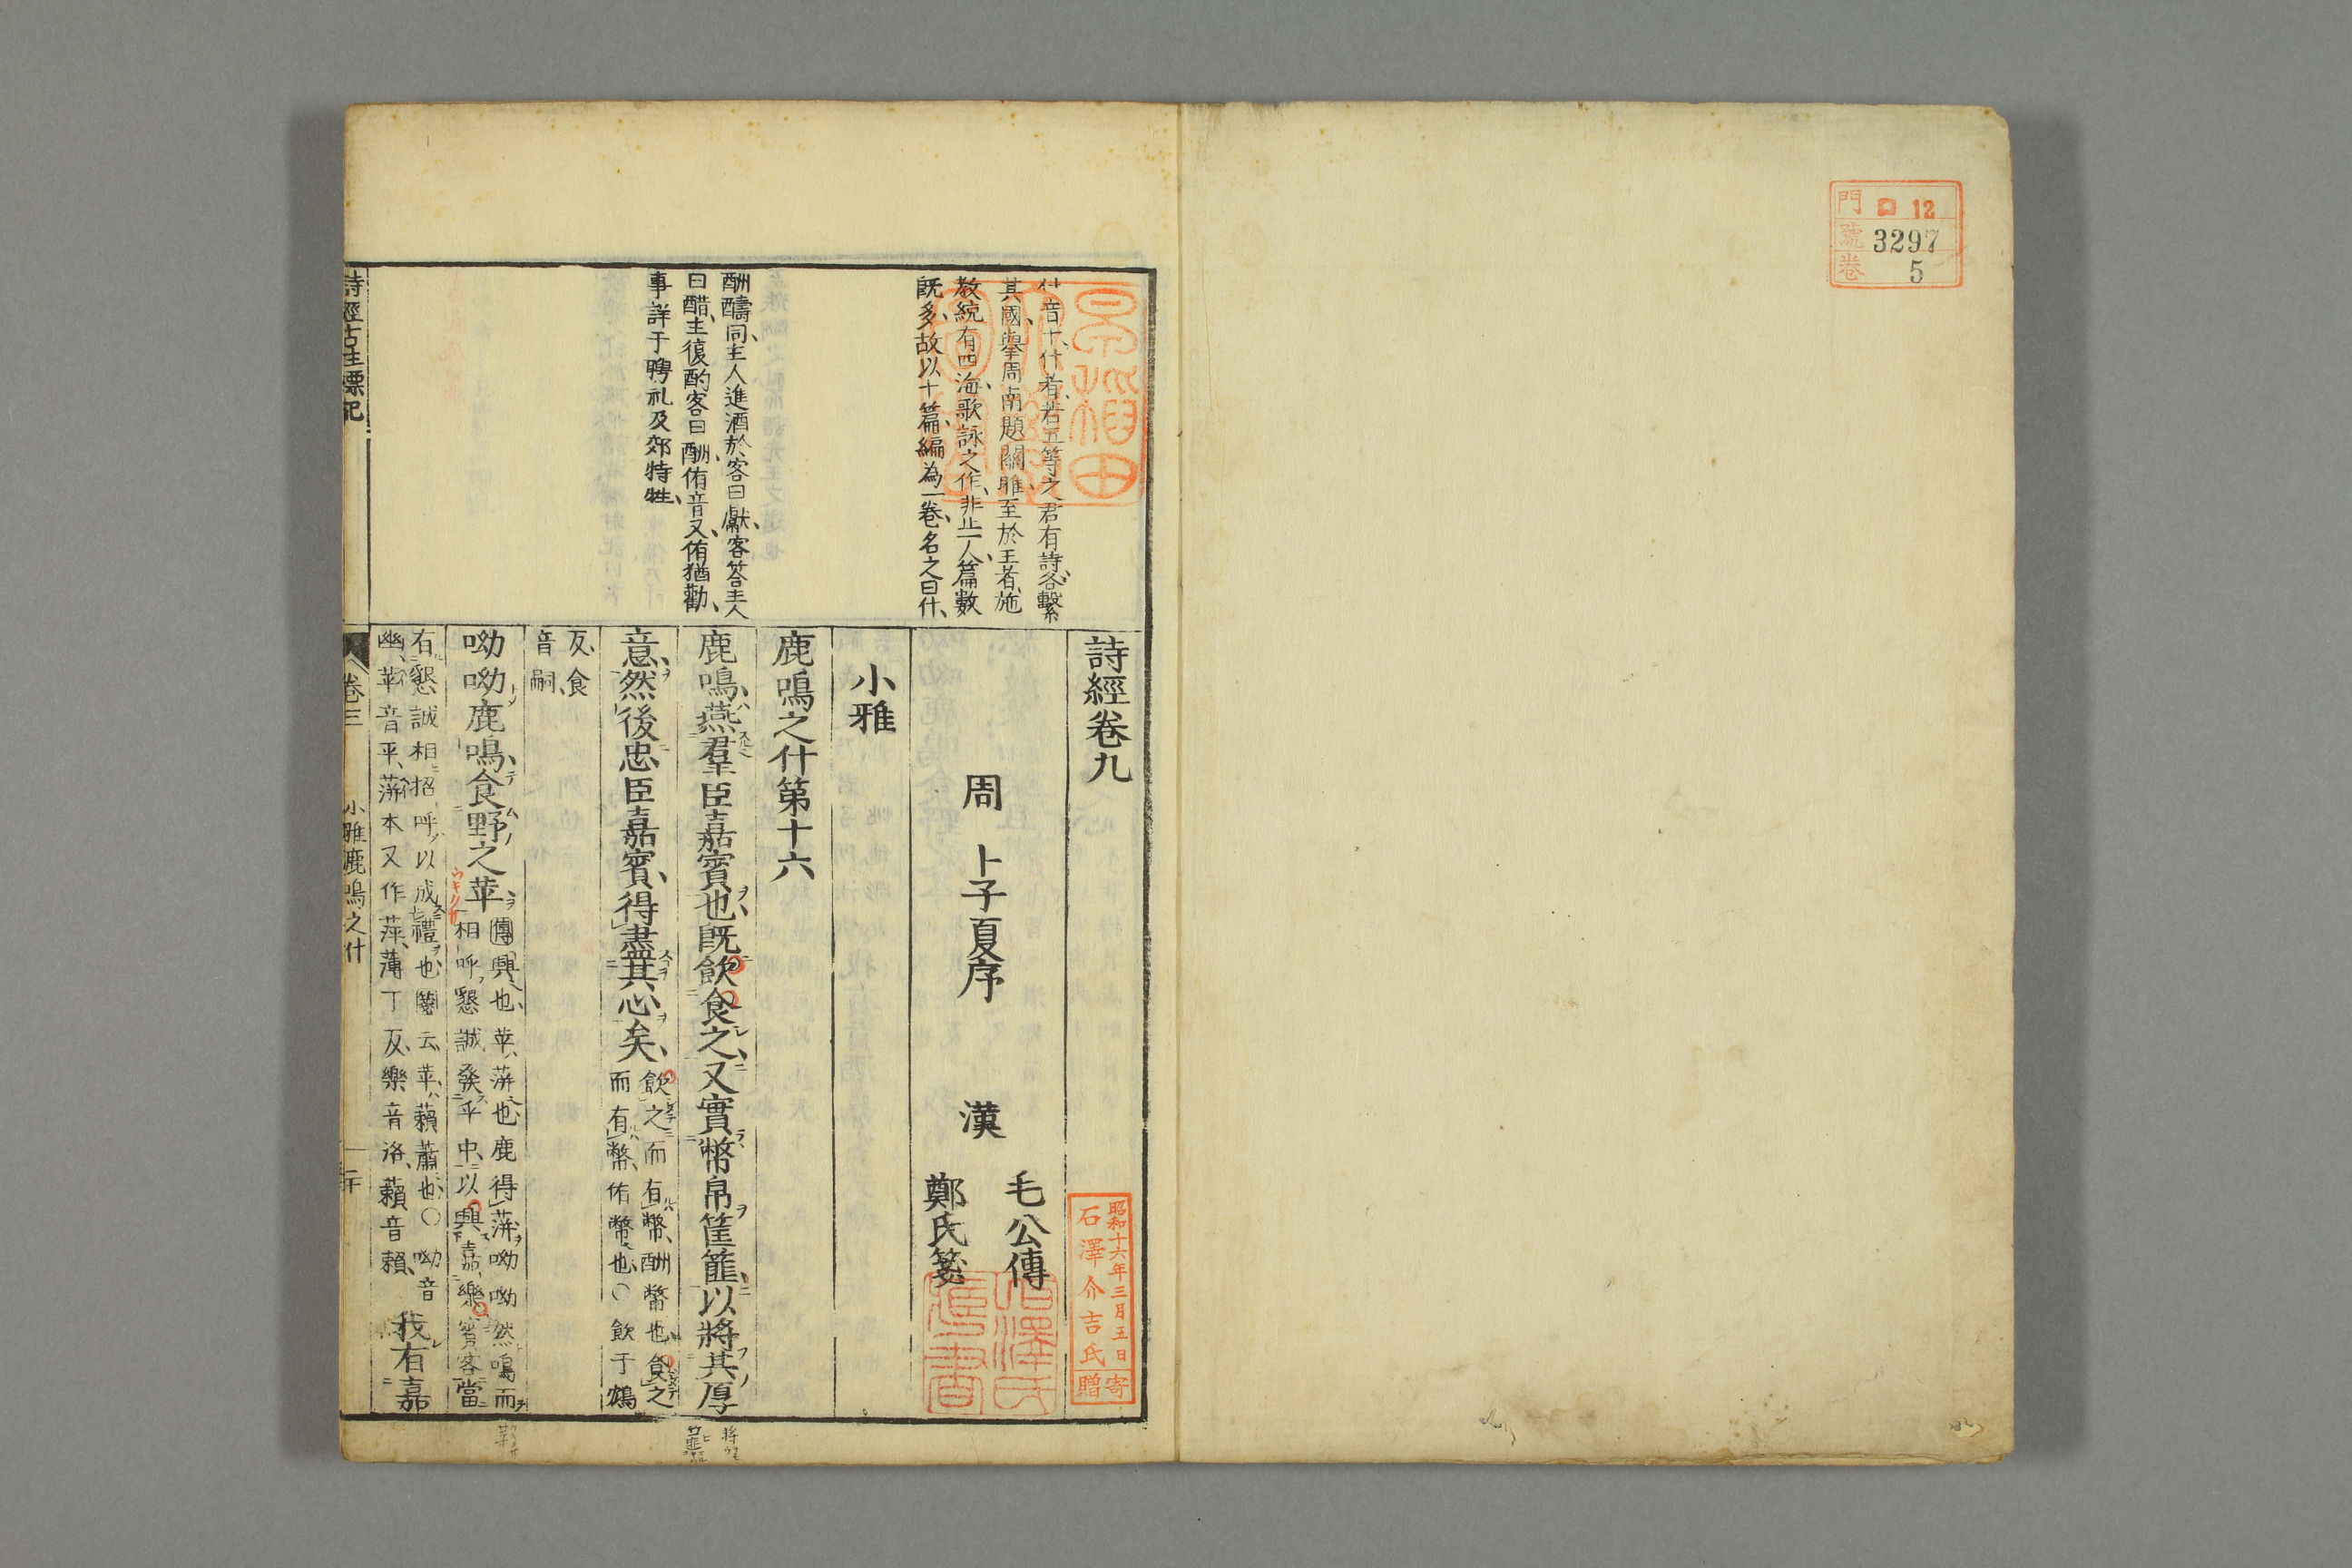 門 ロ 12
號 3297
卷 5
什音十、什者、若五等之君有詩、各繫
其國、舉周南題關雎、至於王者、施
教統有四海、歌詠之作、非止一人、篇數
既多、故以十篇、編為一卷、名之曰什、
酬醻同、主人進酒於客曰獻、客答主人
曰醋、主復酌客曰酬、侑音又、侑猶勸、
事詳于聘礼及郊特牲、
詩經卷九
昭和十六年三月五日
石澤介吉氏
寄贈
周 卜子夏序 漢 毛公傳
鄭氏箋
小雅
鹿鳴之什第十六
鹿鳴、燕羣臣嘉賓也、既飲食之、又實幣帛筐篚、以將其厚
意、然後忠臣嘉賓、得盡其心矣、
飲之而有幣、酬幣也、食之
而有幣、侑幣也、○飲于鴆
反、食
音嗣、
呦呦鹿鳴、食野之苹、
傳興也、苹、蓱也、鹿得蓱、呦呦然鳴而
相呼、懇誠發乎中、以興嘉樂賓客、當
有懇誠相招呼、以成禮也、箋云、苹、藾蕭也、○呦音
幽、苹音平、蓱本又作萍、薄丁反、樂音洛、藾音賴、
我有嘉
詩經古注標記
卷三
小雅鹿鳴之什